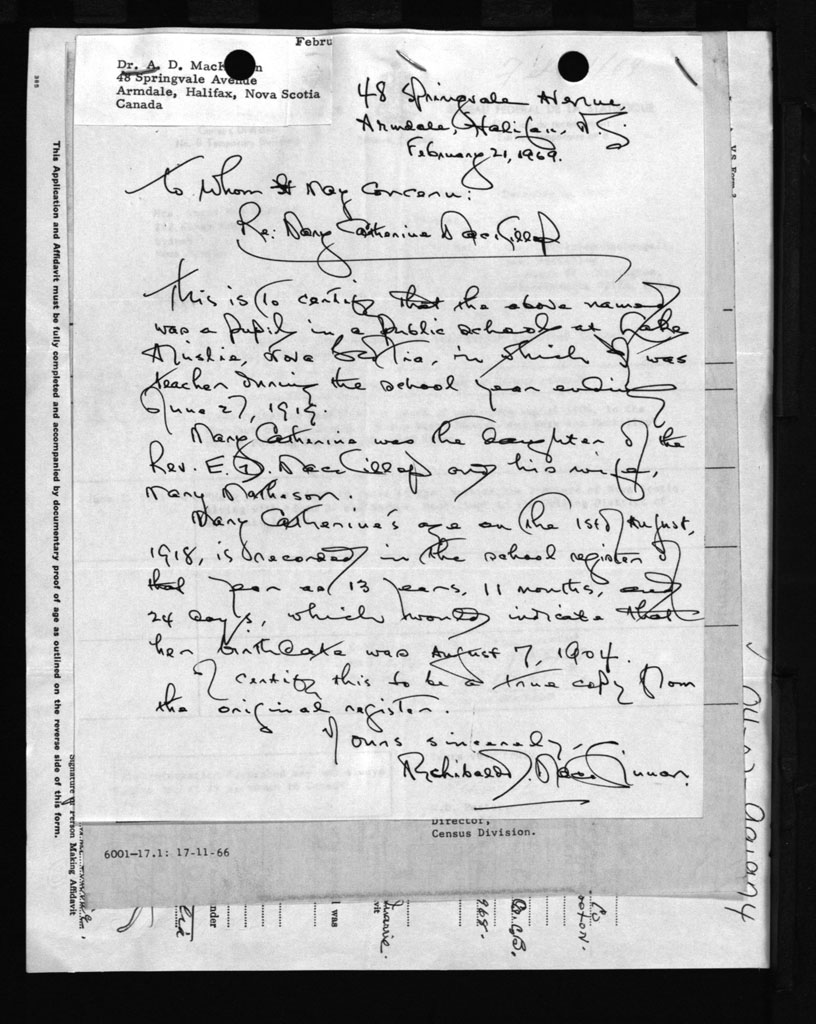 Febru
Dr. A. D. MacK
48 Springvale Avenue
Armdale, Halifax, Nova Scotia
Canada
48 Springvale Avenue,
Armdale, Halifax, N.S.
February 21, 1969.
To Whom It May Concern:
Re: Mary Catherine MacKillop
This is to certify that the above named
was a pupil in a public school at Lake
Ainslie, Nova Scotia, in which I was
teacher during the school year ending
June 27, 1919.
Mary Catherine was the daughter of the
Rev. E. D. MacKillop and his wife,
Mary Matheson.
Mary Catherine's age on the 1st of August,
1918, is recorded in the school register of
that year as 13 years, 11 months, and
24 days, which would indicate that
her birthdate was August 7, 1904.
I certify this to be a true copy from
the original register.
Yours sincerely,
Archibald D. MacKinnon.
Director,
Census Division.
6001-17.1: 17-11-66
This Application and Affidavit must be fully completed and accompanied by documentary proof of age as outlined on the reverse side of this form.
Signature of Person Making Affidavit
I was
nder